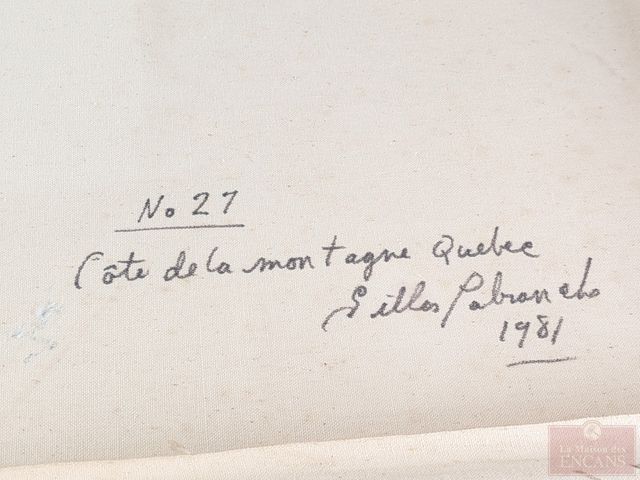 No 27
Côte de la montagne Quebec
Gilles Labranche
1981
La Maison des
ENCANS